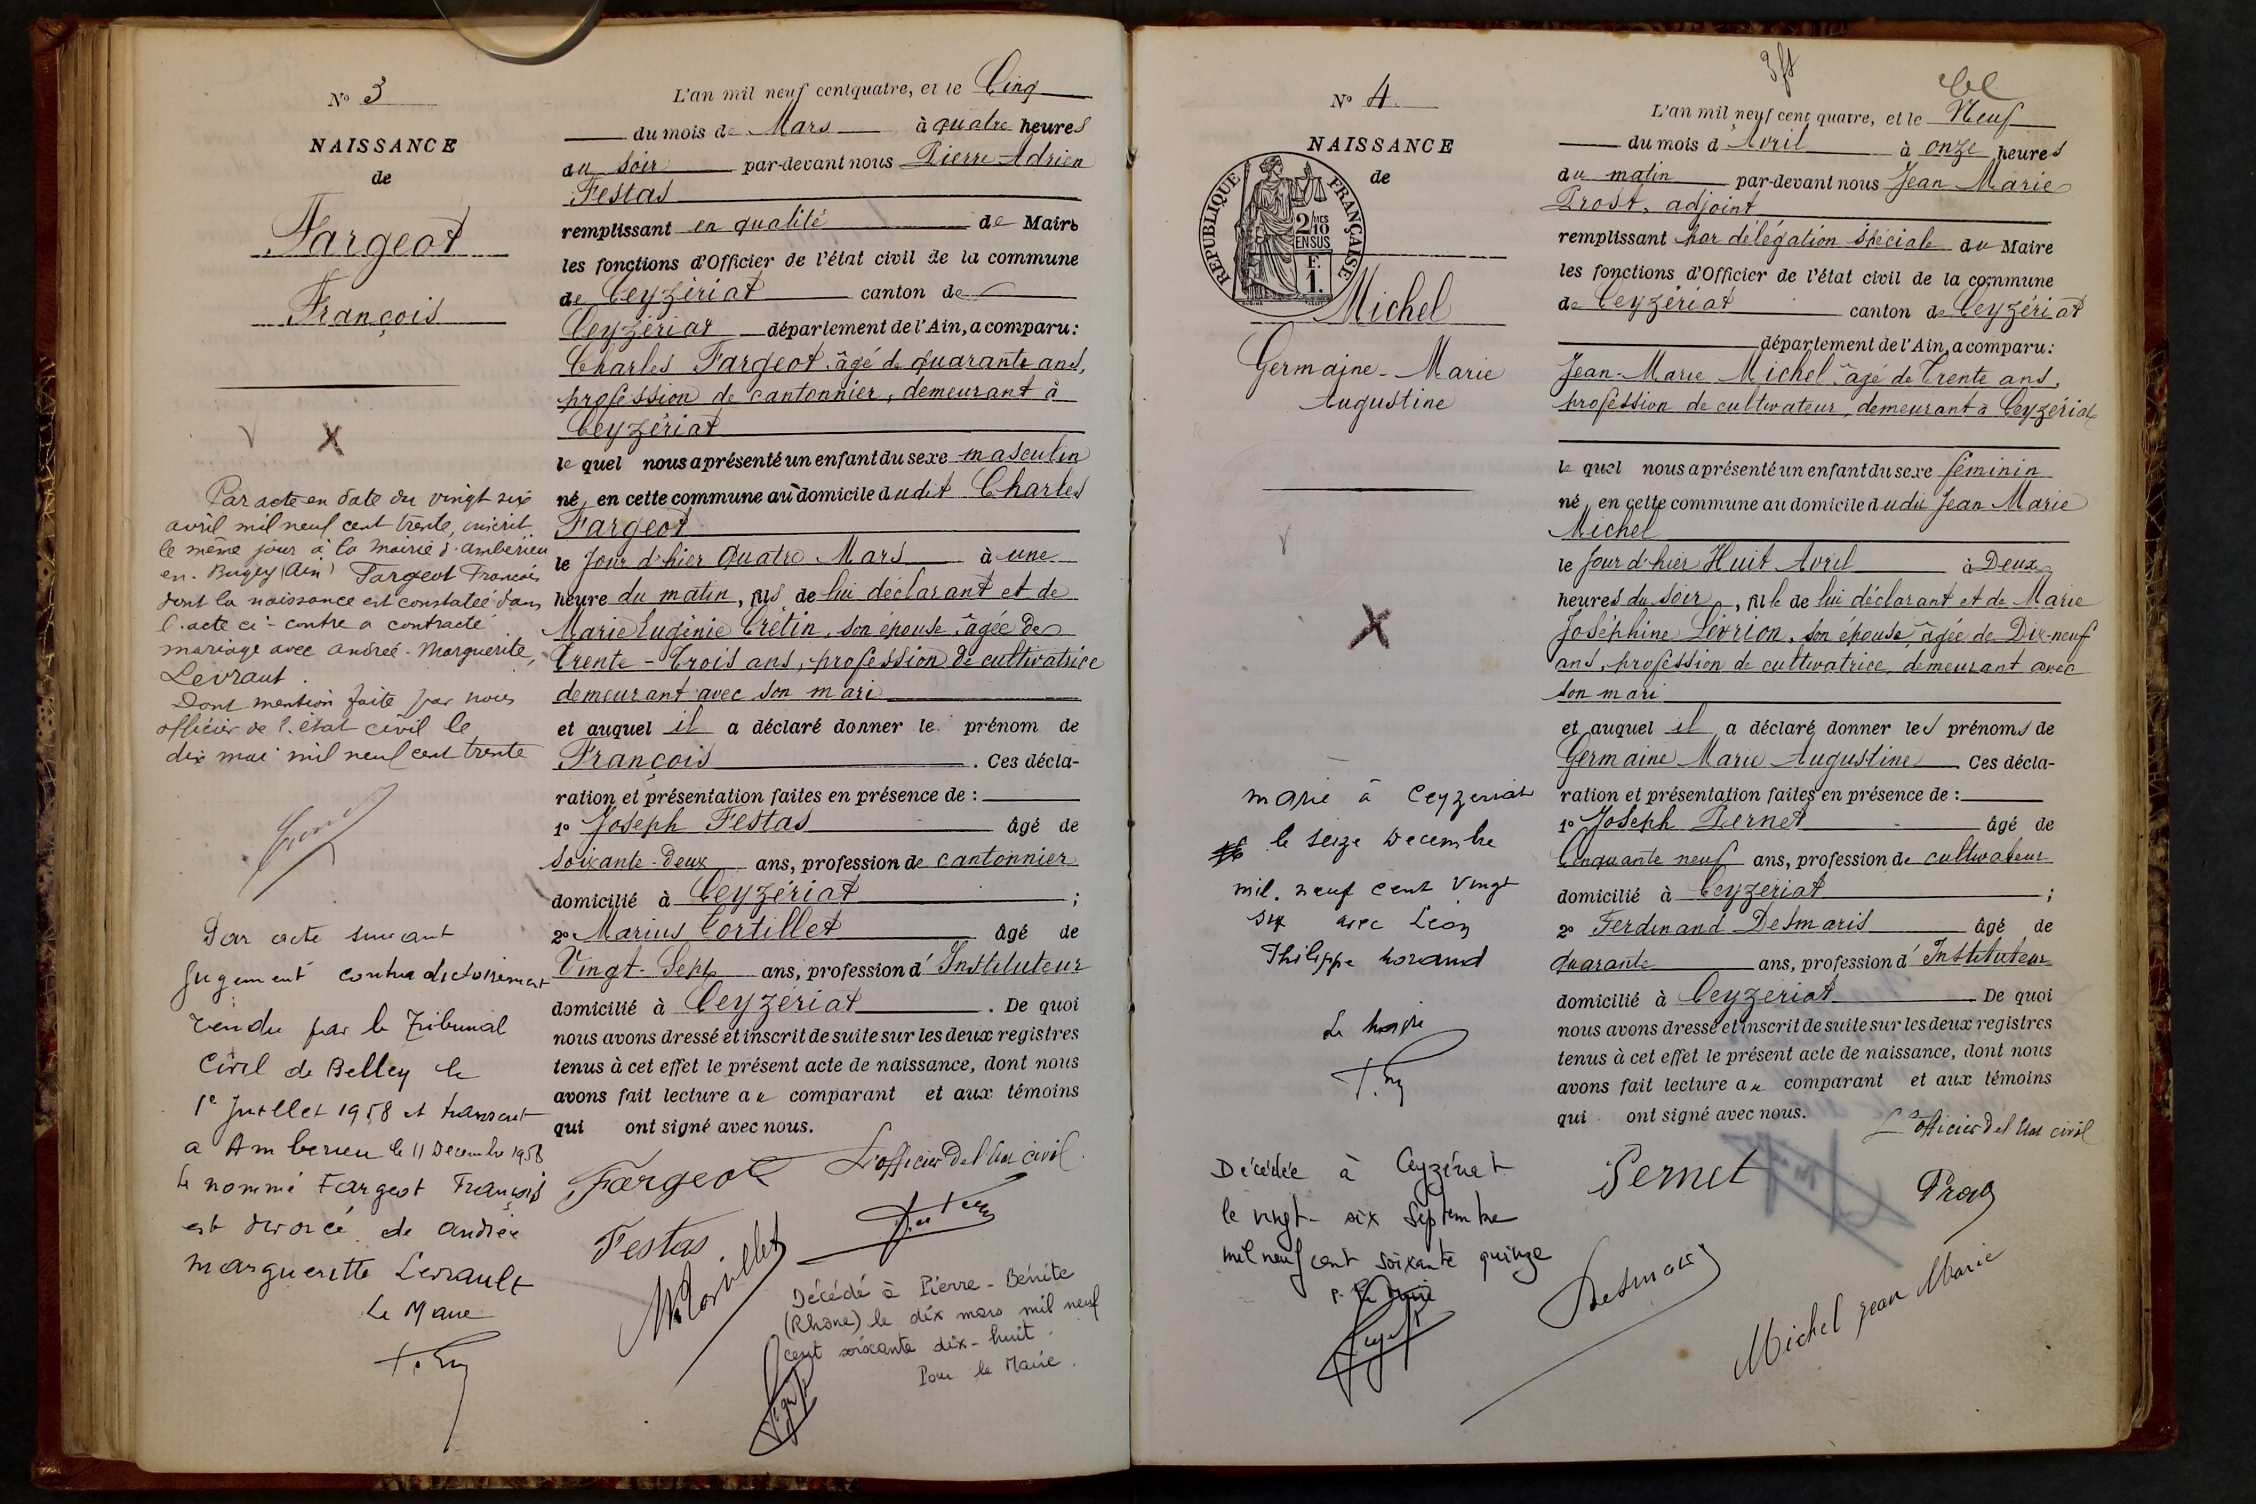 N° 3
NAISSANCE
de
Fargeot
François
Par acte en date du vingt six
avril mil neuf cent trente, inscrit
le même jour à la mairie d'Ambérieu
en-Bugey (Ain) Fargeot François
dont la naissance est constatée dans
l'acte ci-contre a contracté
mariage avec Andrée-Marguerite,
Levraut.
Dont mention faite par nous
officier de l'état civil le
dix mai mil neuf cent trente
Par acte suivant
Jugement contradictoirement
rendu par le Tribunal
Civil de Belley le
1e Juillet 1958 et transcrit
a Amberieu le 11 Decembre 1958
le nommé Fargeot François
est divorcé de Andrée
Marguerite Levrault
Le Maire
L'an mil neuf centquatre, et le Cinq
du mois de Mars à quatre heures
du soir par-devant nous Pierre Adrien
Festas
remplissant en qualité de Maire
les fonctions d'Officier de l'état civil de la commune
de Ceyzériat canton de
Ceyzériat département de l'Ain, a comparu:
Charles Fargeot âgé de quarante ans,
profession de cantonnier, demeurant à
Ceyzériat
le quel nous a présenté un enfant du sexe masculin
né, en cette commune au domicile dudit Charles
Fargeot
le Jour d'hier Quatre Mars à une
heure du matin, fils de lui déclarant et de
Marie Eugénie Crétin, son épouse, âgée de
Trente-Trois ans, profession de cultivatrice
demeurant avec son mari
et auquel il a déclaré donner le prénom de
François. Ces décla-
ration et présentation faites en présence de :
1° Joseph Festas âgé de
Soixante-Deux ans, profession de cantonnier
domicilié à Ceyzériat ;
2° Marius Cortillet âgé de
Vingt-Sept ans, profession d'Instituteur
domicilié à Ceyzériat. De quoi
nous avons dressé et inscrit de suite sur les deux registres
tenus à cet effet le présent acte de naissance, dont nous
avons fait lecture au comparant et aux témoins
qui ont signé avec nous.
Fargeot L'officier de l'état civil
Festas
M. Cortillet
Décédé à Pierre-Bénite
(Rhône) le dix mars mil neuf
cent soixante dix-huit.
Pour le Maire.
N° 4
NAISSANCE
de
RÉPUBLIQUE FRANÇAISE
2/10 MES
EN SUS
F.
1.
Michel
Germaine-Marie
Augustine
Marié à Ceyzeriat
le seize Decembre
mil. neuf cent vingt
six avec Léon
Philippe Morand
Le Maire
Décédée à Ceyzériat
le vingt-six Septembre
mil neuf cent soixante quinze
P. Le Maire
L'an mil neuf cent quatre, et le Neuf
du mois d'Avril à onze heures
du matin par-devant nous Jean Marie
Prost, adjoint
remplissant par délégation spéciale du Maire
les fonctions d'Officier de l'état civil de la commune
de Ceyzériat canton de Ceyzériat
département de l'Ain, a comparu:
Jean-Marie Michel, âgé de Trente ans,
profession de cultivateur, demeurant à Ceyzériat
le quel nous a présenté un enfant du sexe féminin
né, en cette commune au domicile dudit Jean Marie
Michel
le Jour d'hier Huit Avril à Deux
heures du soir, fille de lui déclarant et de Marie
Joséphine Levrion, son épouse, âgée de Dix-neuf
ans, profession de cultivatrice, demeurant avec
son mari
et auquel il a déclaré donner les prénoms de
Germaine Marie Augustine Ces décla-
ration et présentation faites en présence de :
1° Joseph Pernet âgé de
Cinquante neuf ans, profession de cultivateur
domicilié à Ceyzeriat ;
2° Ferdinand Desmaris âgé de
quarante ans, profession d'Instituteur
domicilié à Ceyzeriat De quoi
nous avons dressé et inscrit de suite sur les deux registres
tenus à cet effet le présent acte de naissance, dont nous
avons fait lecture au comparant et aux témoins
qui ont signé avec nous.
L'officier de l'état civil
Pernet
Prost
Desmaris
Michel jean Marie